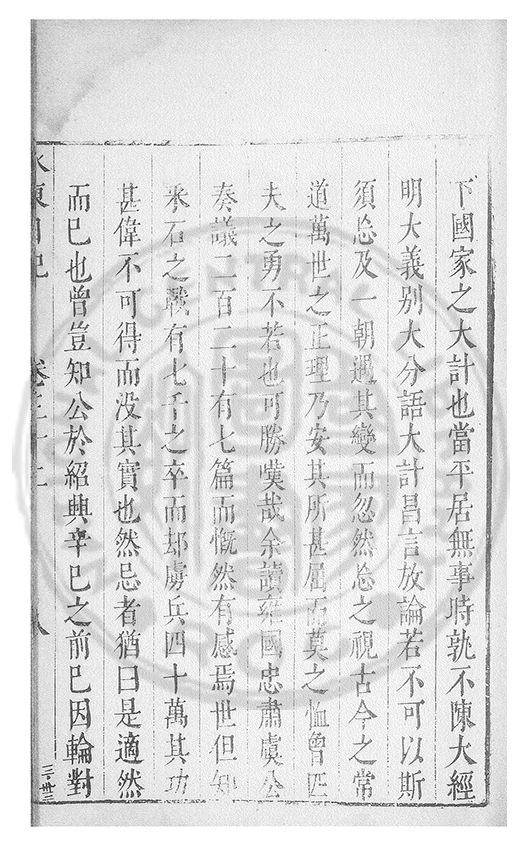 下國家之大計也當平居無事時孰不陳大經
明大義別大分語大計昌言放論若不可以斯
須忘及一朝遇其變而忽然忘之視古今之常
道萬世之正理乃安其所甚屈而莫之恤曾匹
夫之勇不若也可勝嘆哉余讀雍國忠肅虞公
奏議二百二十有七篇而慨然有感焉世但知
釆石之戰有七千之卒而却虜兵四十萬其功
甚偉不可得而没其實也然忌者猶曰是適然
而巳也曾豈知公於紹興辛巳之前巳因輪對
水東日記 卷三十二 八